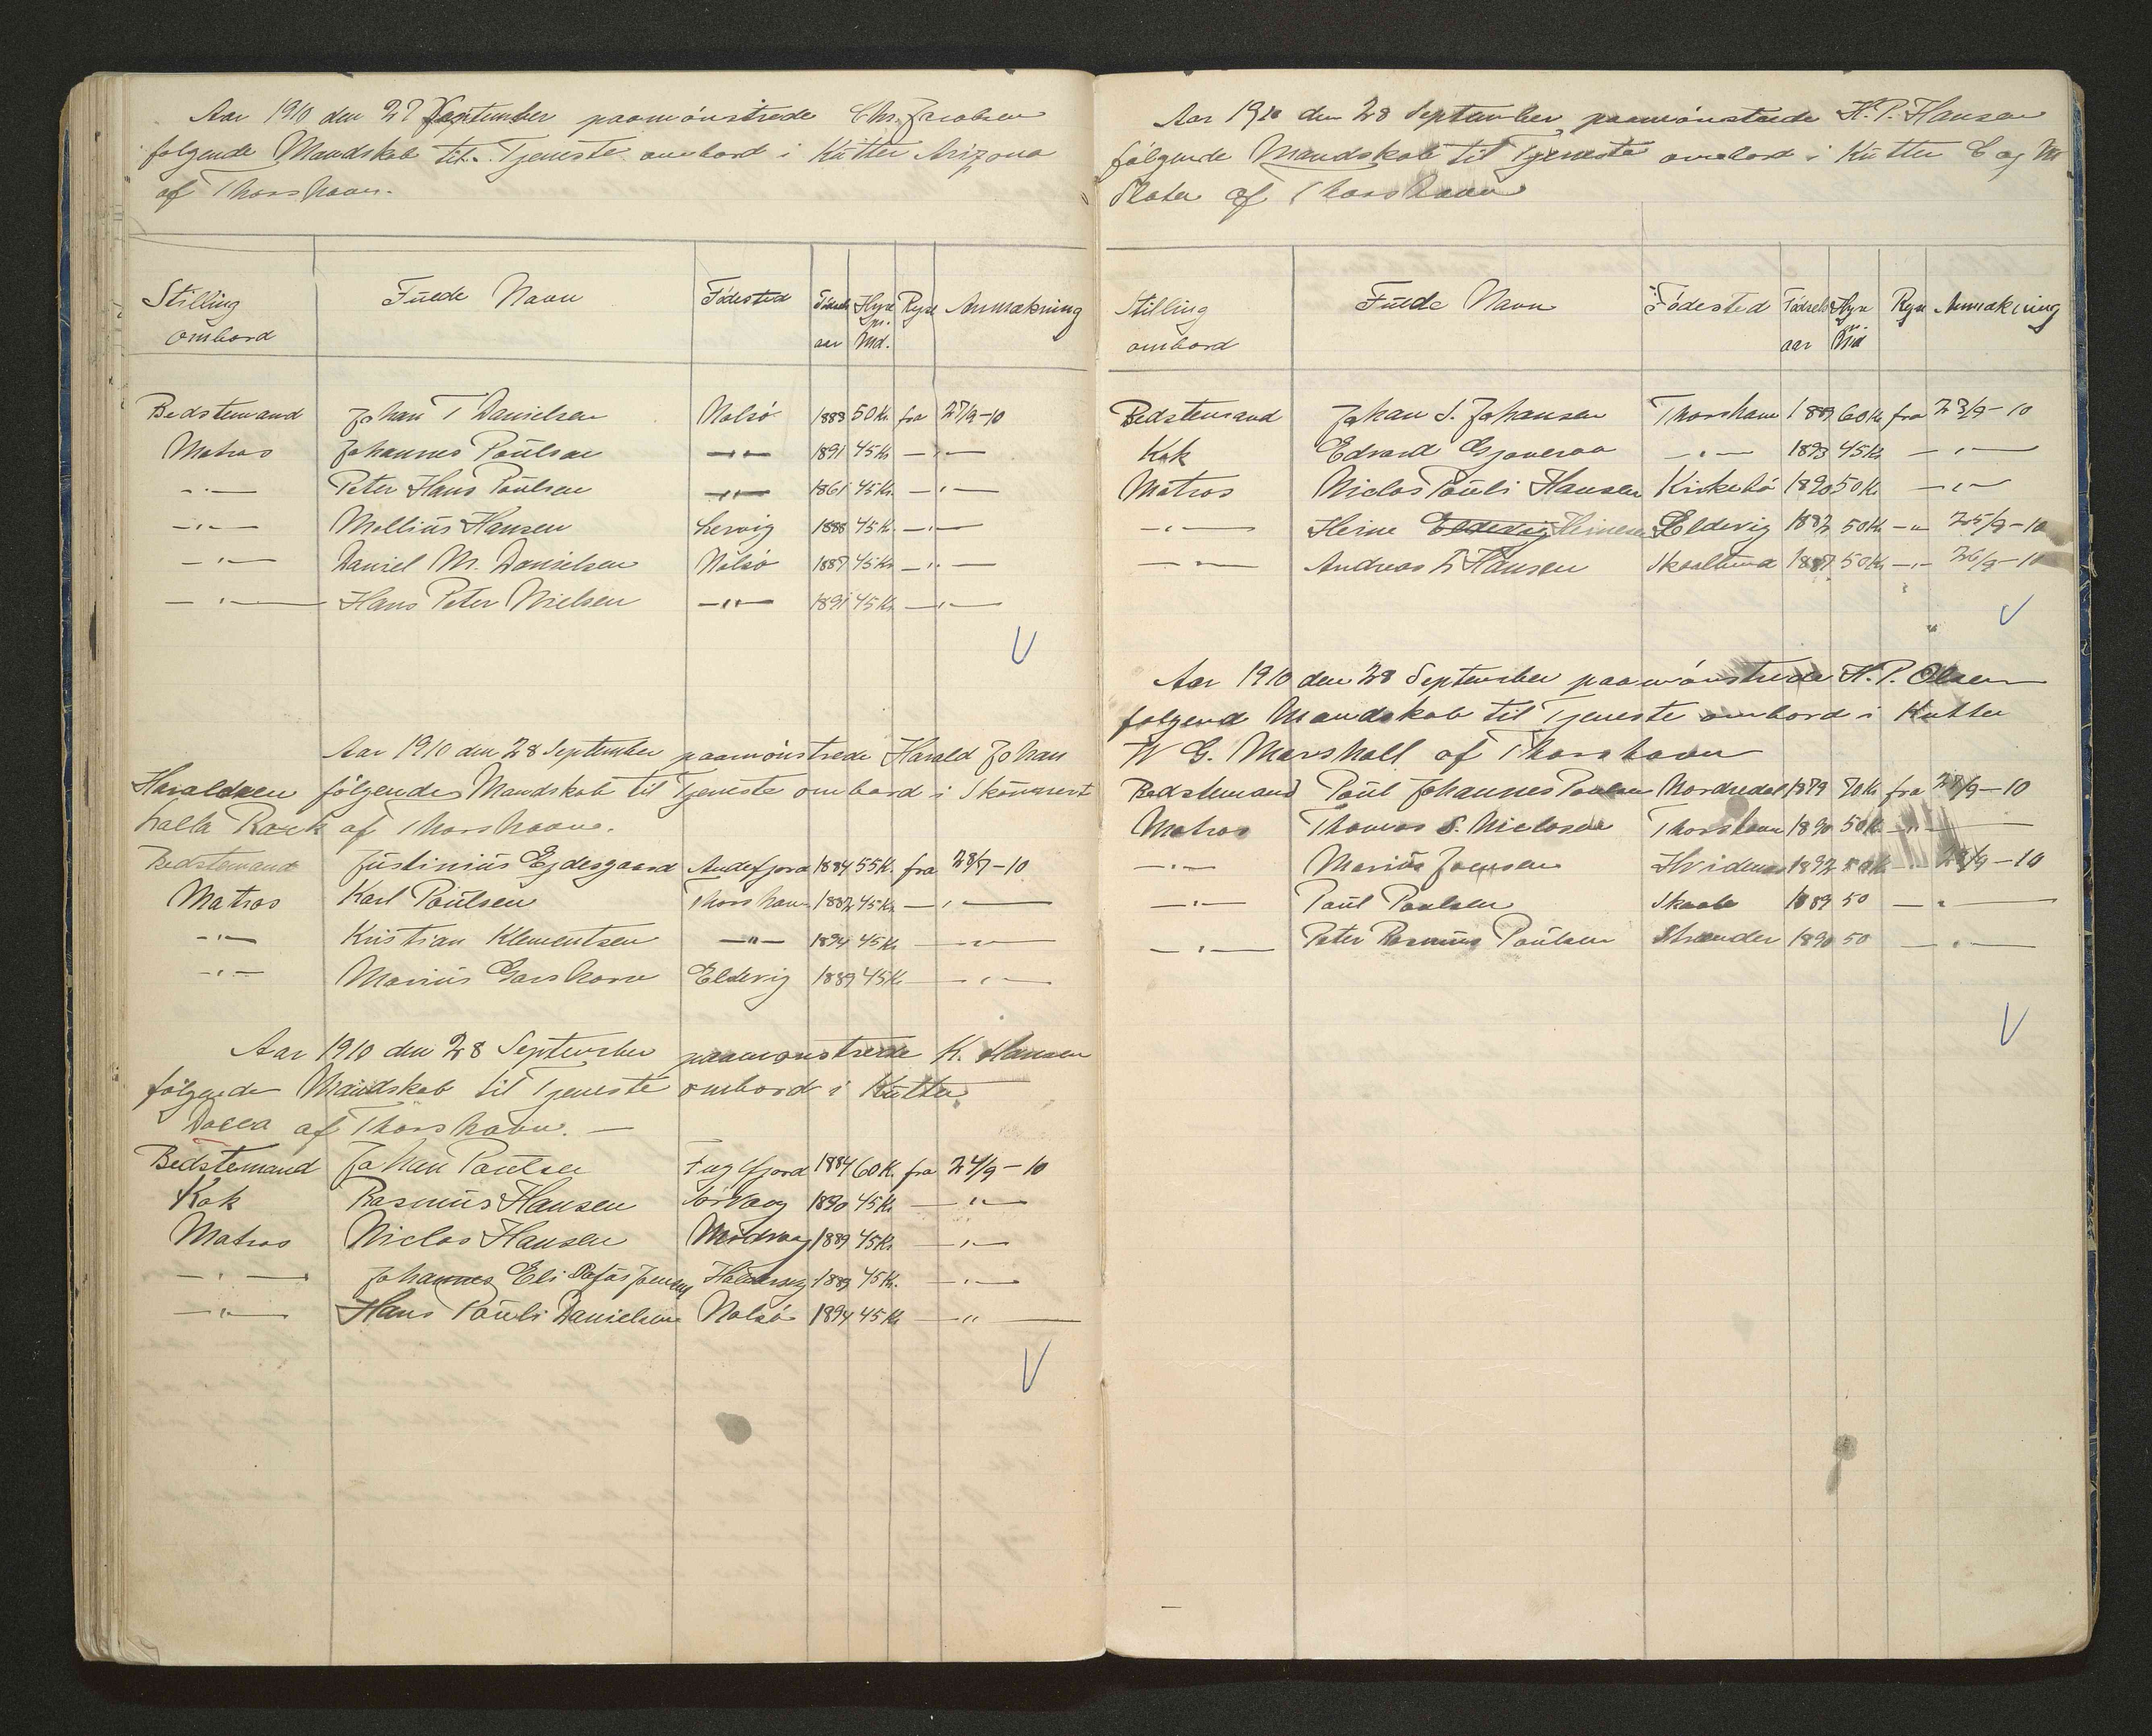 Aar 1910 den 27 September paamönstrede Chr. Jacobsen
følgende Mandskab til Tjeneste ombord i Kutter Arizona
af Thorshavn.
Stilling ombord Fulde Navn Födested Födsels aar Hyre pr. Md. Hyre Anmærkning
Bedstemand Johan T Danielsen Nolsö 1883 50 Kr. fra 27/9-10
Matros Johannes Poulsen -"- 1891 45 Kr. -"-
-"- Peter Hans Poulsen -"- 1861 45 Kr. -"-
-"- Mollius Hansen Lervig 1888 45 Kr. -"-
-"- Daniel M. Danielsen Nolsö 1887 45 Kr. -"-
-"- Hans Peter Nielsen -"- 1891 45 Kr. -"-
Aar 1910 den 28 September paamönstrede Harald Johan
Haraldsen følgende Mandskab til Tjeneste ombord i Skonnert
Lalla Rook af Thorshavn.
Bedstemand Justinius Ejdesgaard Andefjord 1884 55 K. fra 28/9-10
Matros Karl Poulsen Thorshavn 1887 45 Kr. -"-
-"- Kristian Klementsen -"- 1894 45 Kr. -"-
-"- Marius Garshorn Eldevig 1889 45 Kr. -"-
Aar 1910 den 28 September paamonstrede K. Hansen
følgende Mandskab til Tjeneste ombord i Kutter
af Thorshavn. -
Bedstemand Johan Poulsen Fuglfjord 1884 60 K. fra 24/9-10
Kok Rasmus Hansen Sörvaag 1890 45 Kr. -"-
Matros Niclas Hansen Midvaag 1889 45 Kr. -"-
-"- Johannes Eli Joensen Haldersvig 1889 45 Kr. -"-
-"- Hans Pauli Danielsen Nolsö 1894 45 Kr. -"-
Aar 1910 den 28 September paamönstrede H. P. Hansen
følgende Mandskab til Tjeneste ombord i Kutter E og M
Slater af Thorshavn
Stilling ombord Fulde Navn Födested Födsels aar Hyre pr. Md Hyre Anmærkning
Bedstemand Johan S. Johansen Thorshavn 1889 60 Kr. fra 23/9-10
Kok Edvard Gjoveraa -"- 1893 45 Kr. -"-
Matros Niclas Pauli Hansen Kirkebö 1890 50 Kr. -"-
-"- Heine Eldevig Heinesen Eldevig 1882 50 Kr. -"- 25/9-10
-"- Andreas Hansen 1887 50 Kr. -"- 26/9-10
Aar 1910 den 28 September paamönstrede H. P. Olsen
følgend Mandskab til Tjeneste ombord i Kutter
W G. Marshall af Thorshavn
Bedstemand Poul Johannes Poulsen Nordredal 1879 70 Kr. fra 27/9-10
Matros Thomas S. Niclasen Thorshavn 1890 50 K. -"-
-"- Marius Joensen 1892 50 K -"- 28/9-10
-"- Poul Poulsen 1889 50 -"-
-"- Peter Rasmus Poulsen Strender 1890 50 -"-